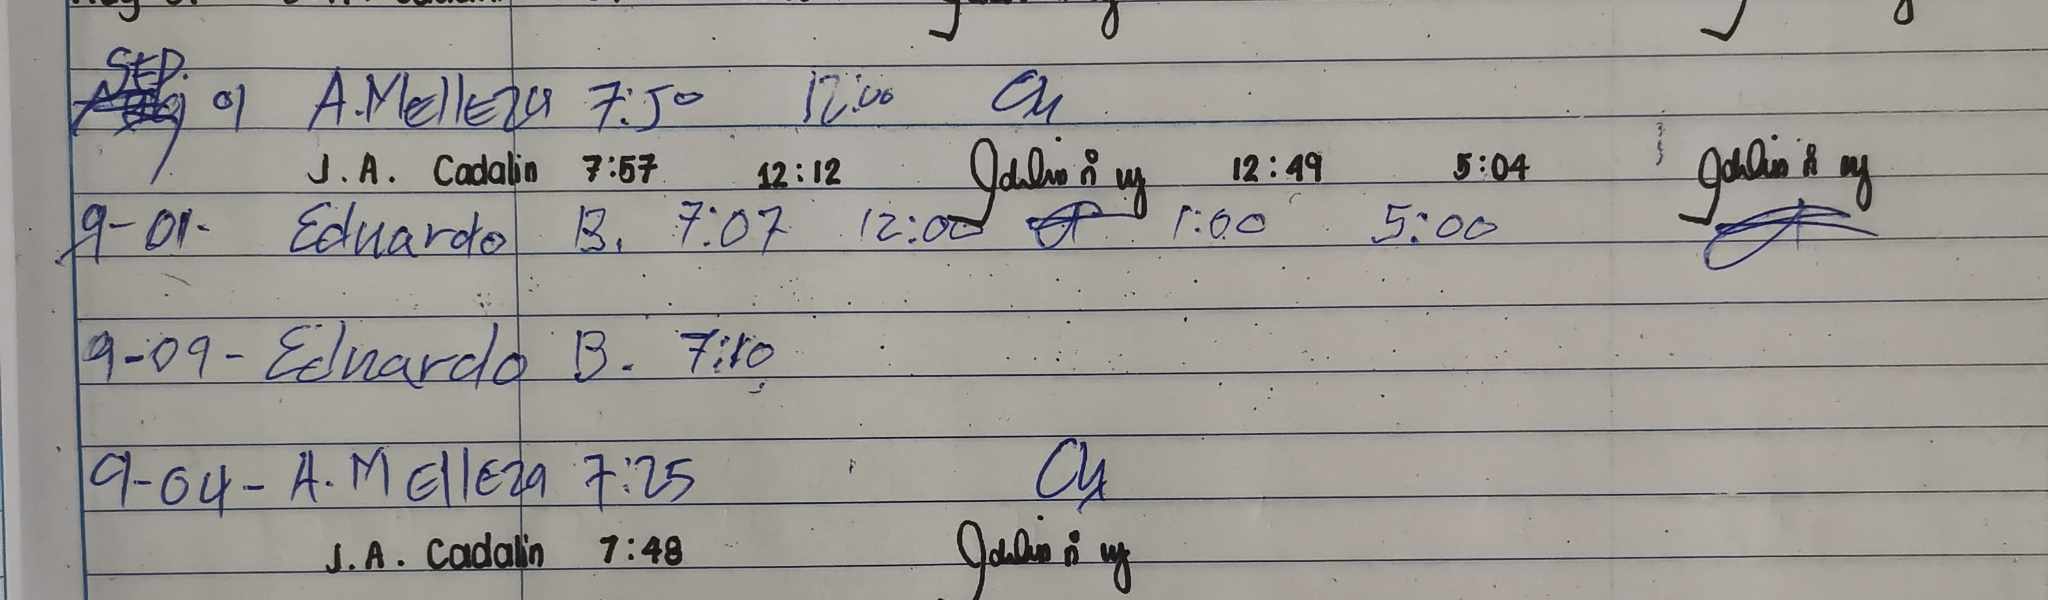 SEP.
01 A. Melleza 7:50 12:00
J. A. Cadalin 7:57 12:12 12:49 5:04
9-01- Eduardo B. 7:07 12:00 1:00 5:00
9-09- Eduardo B. 7:10
9-04- A. Melleza 7:25
J. A. Cadalin 7:48